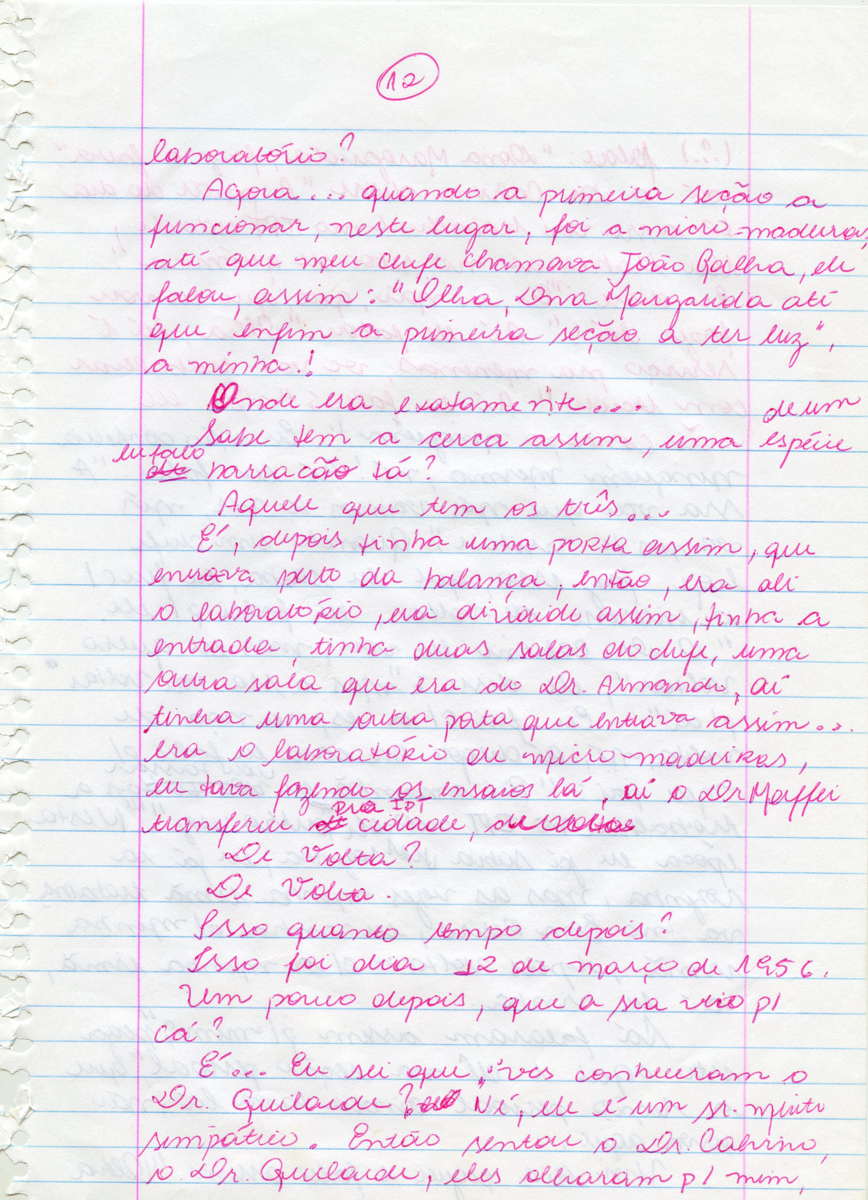 12
laboratório?
Agora... quando a primeira seção a
funcionar, neste lugar, foi a micro-madeiras,
até que meu chefe chamava João Galha, ele
falou, assim: "Olha, Dona Margarida até
que enfim a primeira seção a ter luz",
a minha!
Onde era exatamente...
Sabe tem a cerca assim, uma espécie de um
eu falo barracão tá?
Aquele que tem os três...
É, depois tinha uma porta assim, que
entrava perto da balança, então, era ali
o laboratório, era dividido assim, tinha a
entrada, tinha duas salas do chefe, uma
outra sala que era do Dr. Armando, aí
tinha uma outra porta que entrava assim...
era o laboratório de micro-madeiras,
eu tava fazendo os ensaios lá, aí o Dr Maffei
transferiu pra IPT cidade,
De Volta?
De Volta.
Isso quanto tempo depois?
Isso foi dia 12 de março de 1956.
Um pouco depois, que a sra veio p/
cá?
É... Eu sei que, vcs conheceram o
Dr. Quilarde? Né, ele é um sr. muito
simpático. Então sentou o Dr.
o Dr. Quilarde, eles olharam p/ mim,